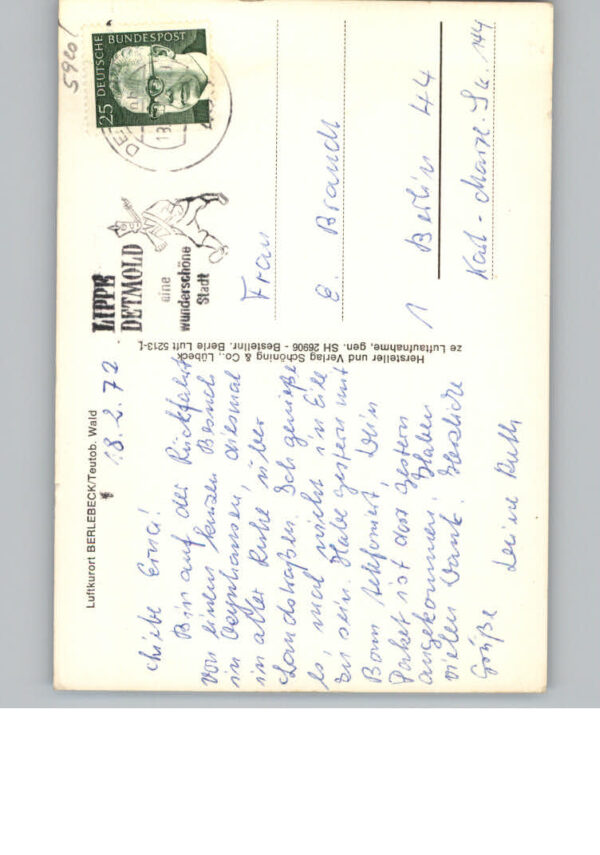 Luftkurort BERLEBECK/Teutob. Wald
18.2.72
Liebe Erna!
Bin auf der Rückfahrt
von einem kurzen Besuch
in Oeynhausen, diesmal
in aller Ruhe über
Landstraßen. Ich genieße
es, mal nicht in Eile
zu sein. Habe gestern mit
Bonn telefoniert. Dein
Paket ist dort gestern
angekommen. Haben
vielen Dank. Herzliche
Grüße Deine Ruth
Hersteller und Verlag Schöning & Co., Lübeck
ze Luftaufnahme, gen. SH 26906 - Bestellnr. Berle Luft 5213-L
5920/
25 DEUTSCHE BUNDESPOST
DE
18.
LIPPE
DETMOLD
eine
wunderschöne
Stadt
Frau
E. Brandt
1 Berlin 44
Karl-Marx-Str. 144